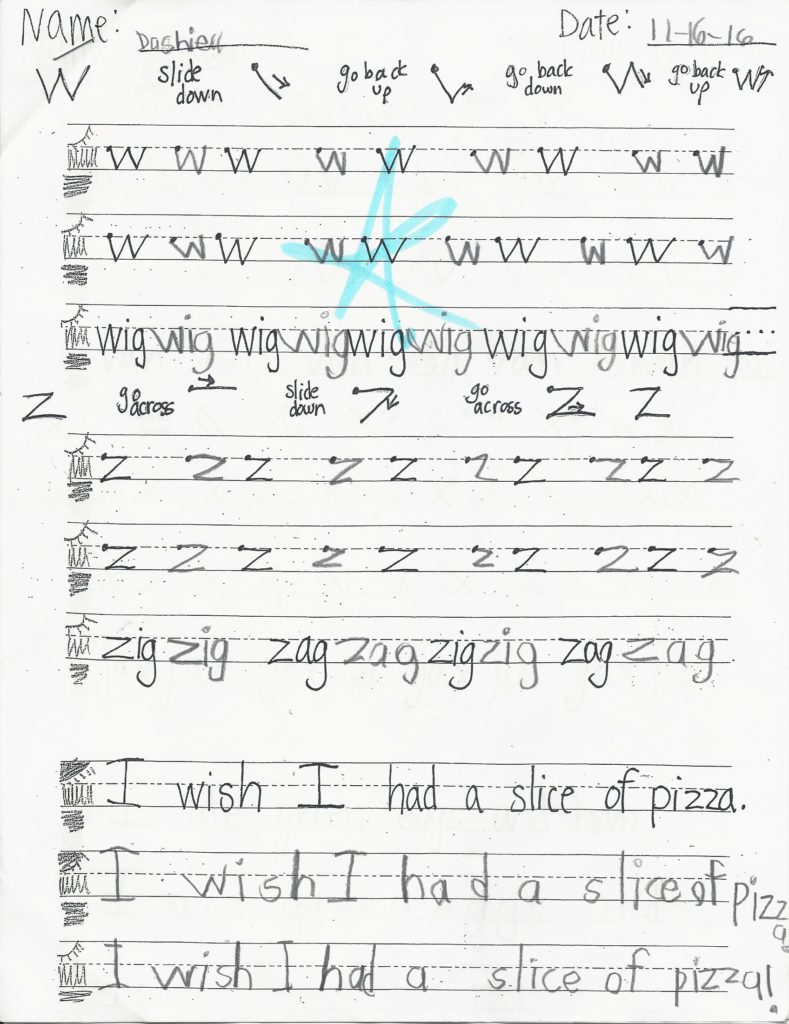 Name: Dashiell Date: 11-16-16
W slide down go back up go back down go back up W
W W W W W W W W W
W W W W W W W W W W
wig wig wig wig wig wig wig wig wig wig
Z go across slide down go across Z Z
Z Z Z Z Z Z Z Z Z Z
Z Z Z Z Z Z Z Z Z Z
zig zig zag zag zig zig zag zag
I wish I had a slice of pizza.
I wish I had a slice of pizza
I wish I had a slice of pizza!